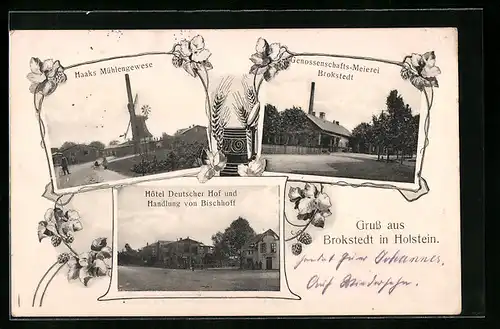 Haaks Mühlengewese
Genossenschafts-Meierei
Brokstedt
Hôtel Deutscher Hof und
Handlung von Bischhoff
Gruß aus
Brokstedt in Holstein.
Johannes.
Auf Wiedersehn.